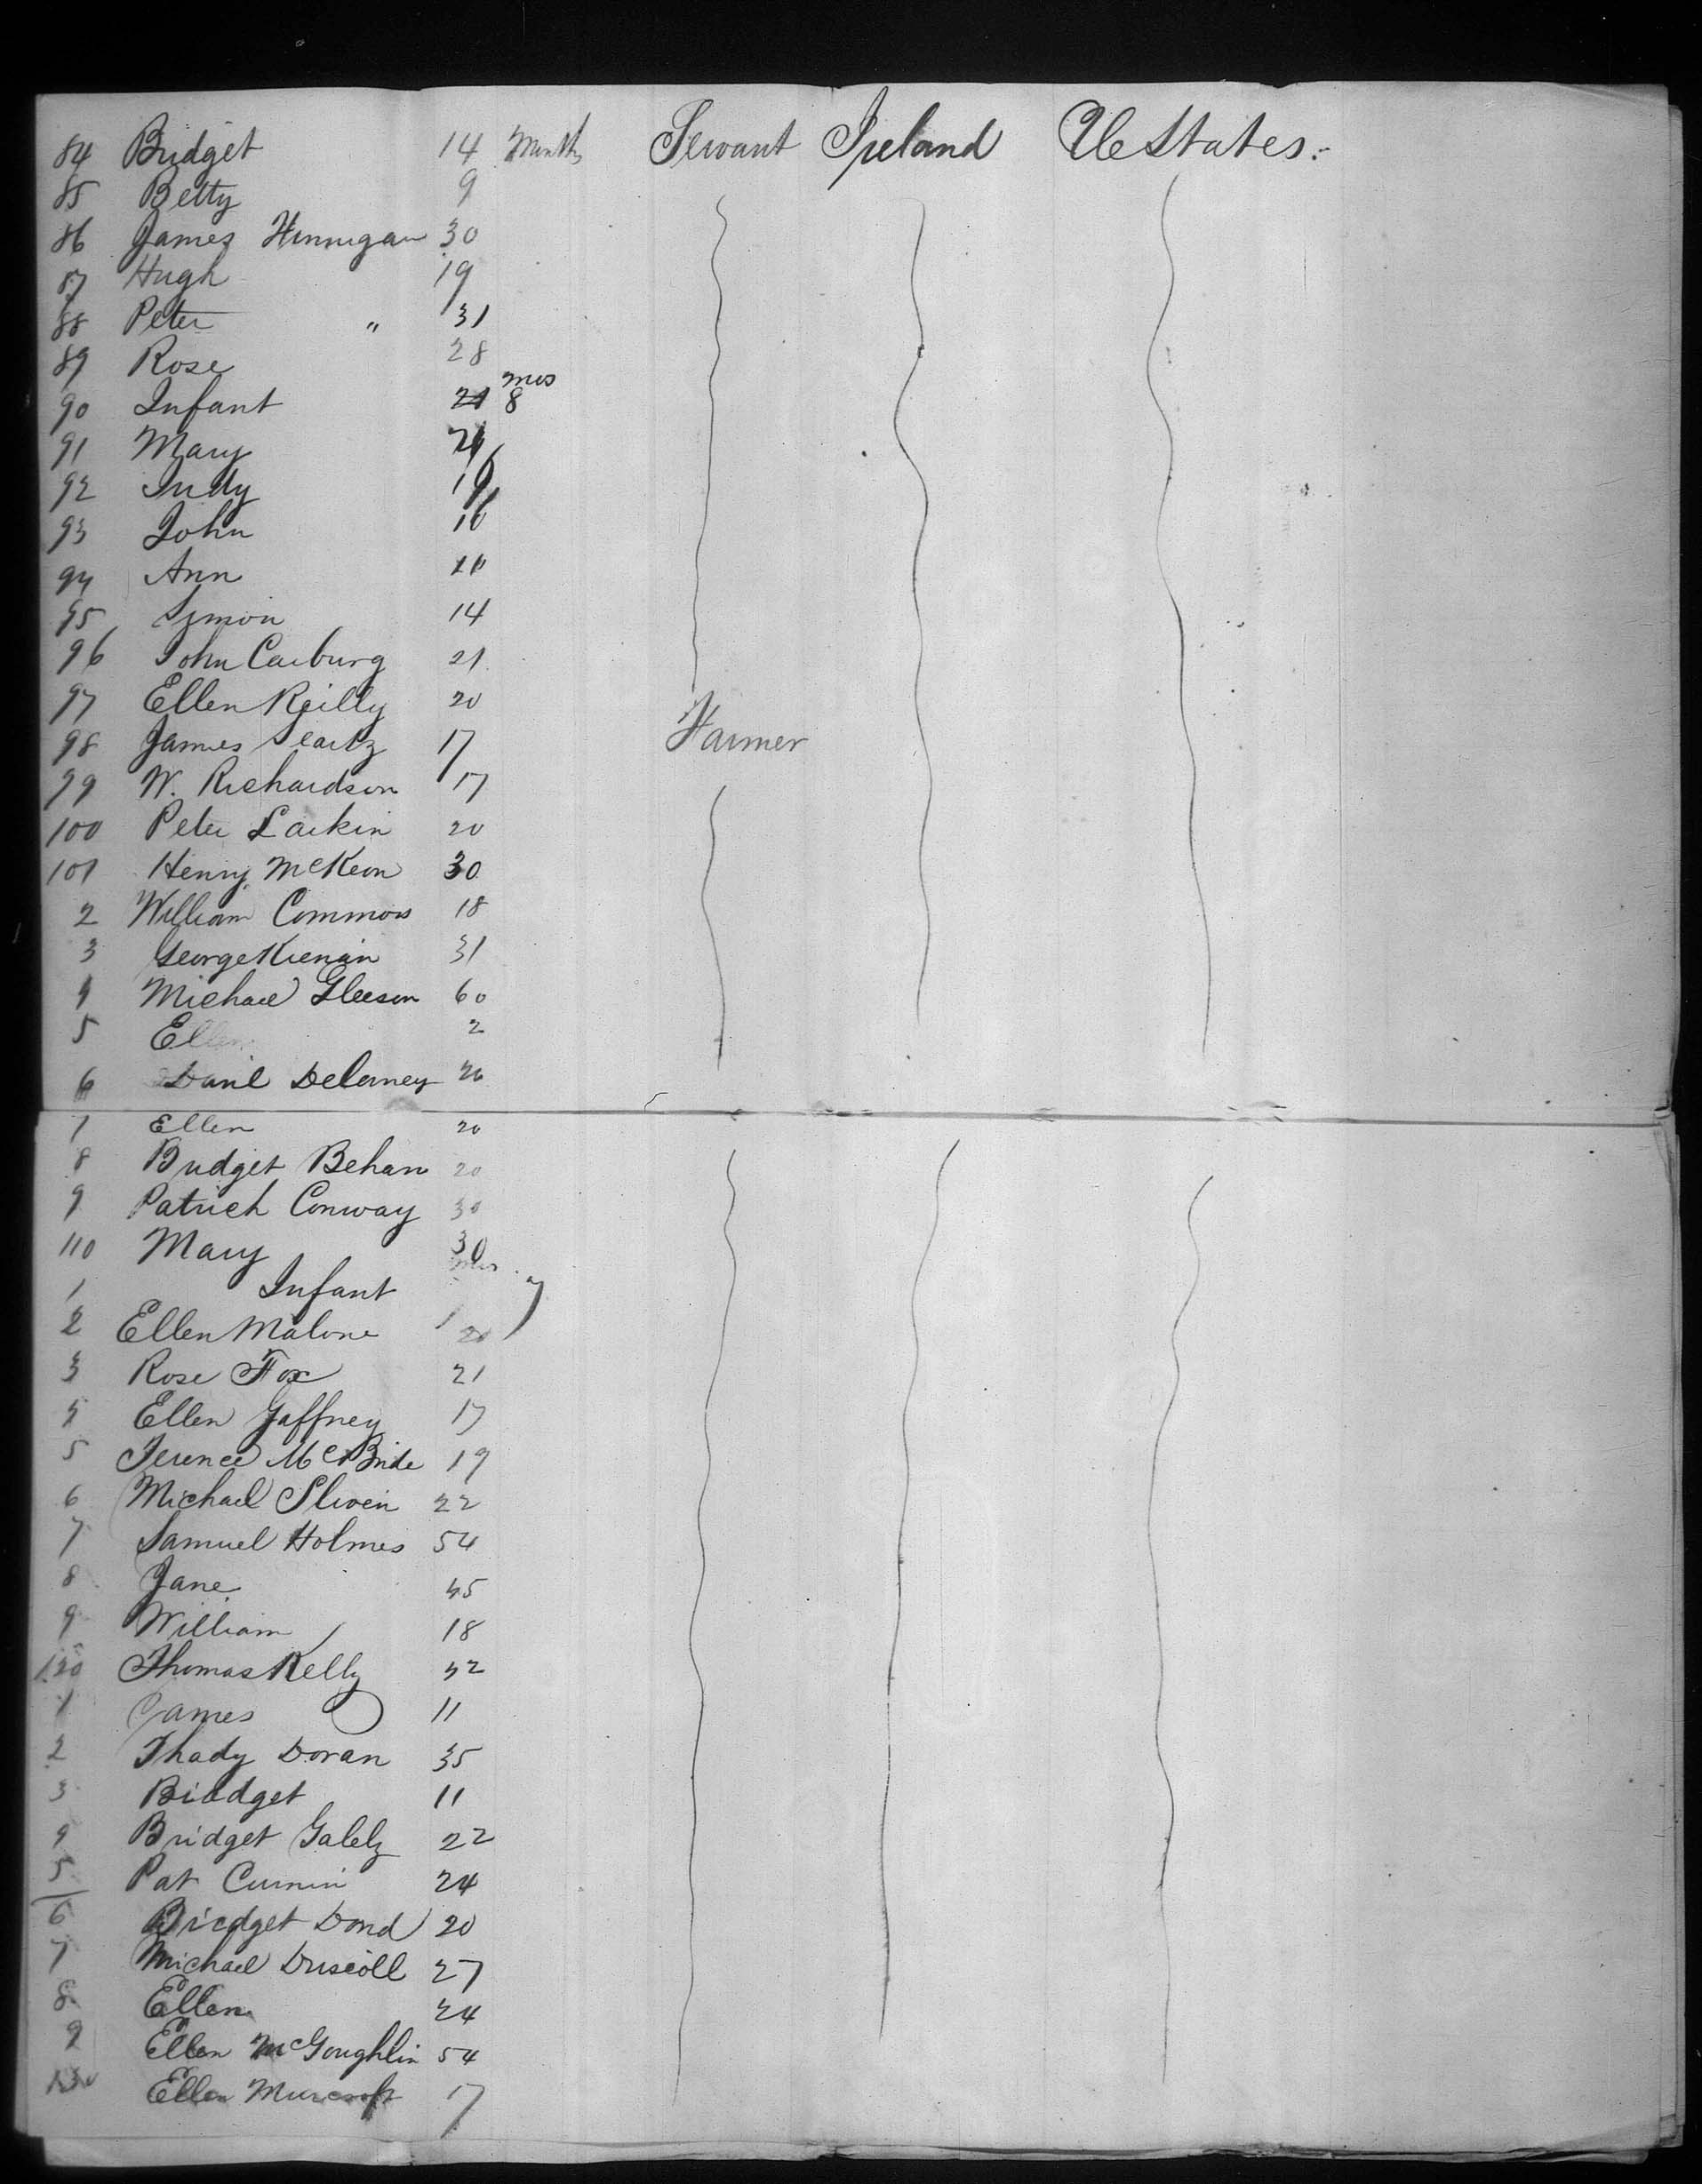 84 Bridget 14 Months Servant Ireland Ue States.
85 Betty 9
86 James Hinnigan 30
87 Hugh 19
88 Peter " 31
89 Rose 28
90 Infant 8 mos
91 Mary
92 Judy
93 John
94 Ann
95 Simon 14
96 John Carburg 21
97 Ellen Reilly 20
98 James 17 Farmer
99 W. Richardson 17
100 Peter Larkin 20
101 Henry McKeon 30
2 William Commons 18
3 George Kienan 31
4 Michael Gleeson 60
5 Ellen 2
6 Danl Delaney
7 Ellen 20
8 Bridget Behan 20
9 Patrick Conway 30
110 Mary 30
1 Infant mos 7
2 Ellen Malone 20
3 Rose Fox 21
4 Ellen Gaffney 17
5 Terence McBride 19
6 Michael Sliven 22
7 Samuel Holmes 54
8 Jane 45
9 William 18
120 Thomas Kelly 42
1 James 11
2 Thady Doran 35
3 Bridget 11
4 Bridget 22
5 Pat Cumin 24
6 Bridget Dond 20
7 Michael Driscoll 27
8 Ellen 24
9 Ellen McGoughlin 54
130 Ellen 17